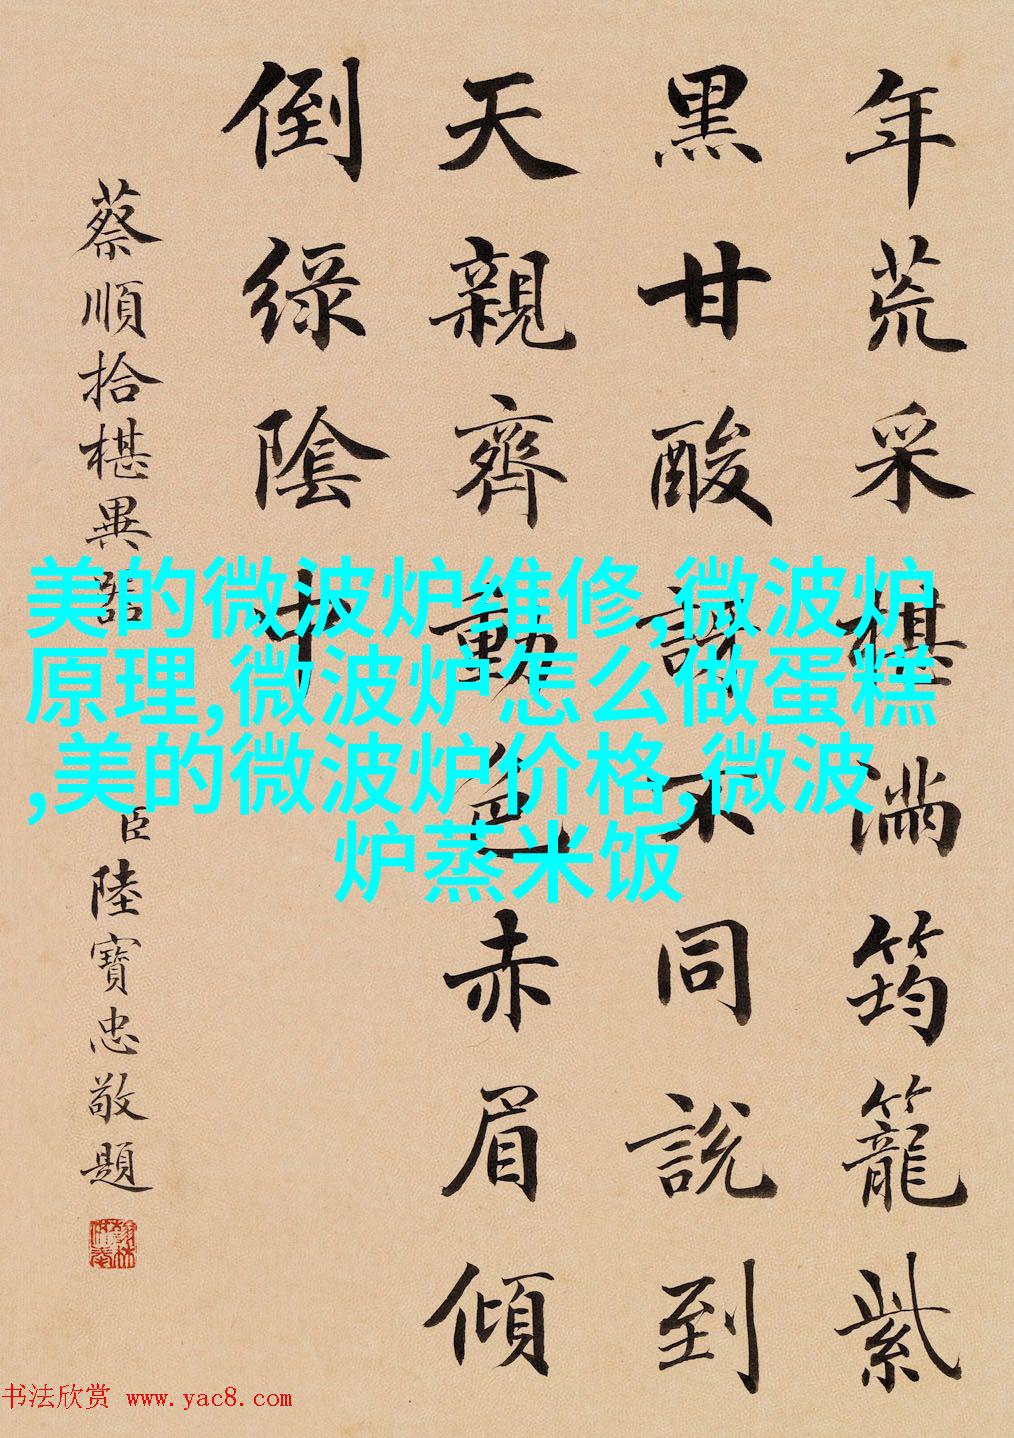 年荒采椹滿筠籠紫
黑甘酸諒不同說到
天親齊動色赤眉傾
倒綠陰中
蔡順拾椹異器
臣陸寶忠敬題
美的微波炉维修,微波炉
原理,微波炉怎么做蛋糕
,美的微波炉价格,微波
炉蒸米饭
书法欣赏 www.yac8.com